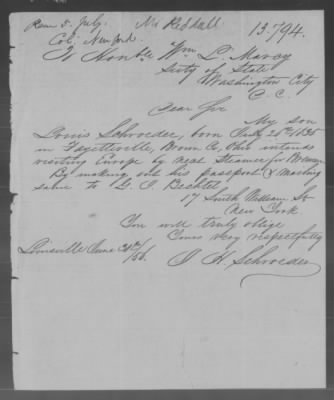 Recd 5. July. Mr Reddall 13.794.
Col: New York.
To Honble Wm L. Marcy
Secty of State
Washington City
D. C.
Dear Sir
My son
Louis Schroeder, born July 25th 1835
in Fayetteville, Brown Co, Ohio intends
visiting Europe by next Steamer for Bremen
By making out his passport & mailing
same to G. J. Bechtel
17 South William St
New York
You will truly oblige
Yours very respectfully
Louisville June 30th/56. J H. Schroeder